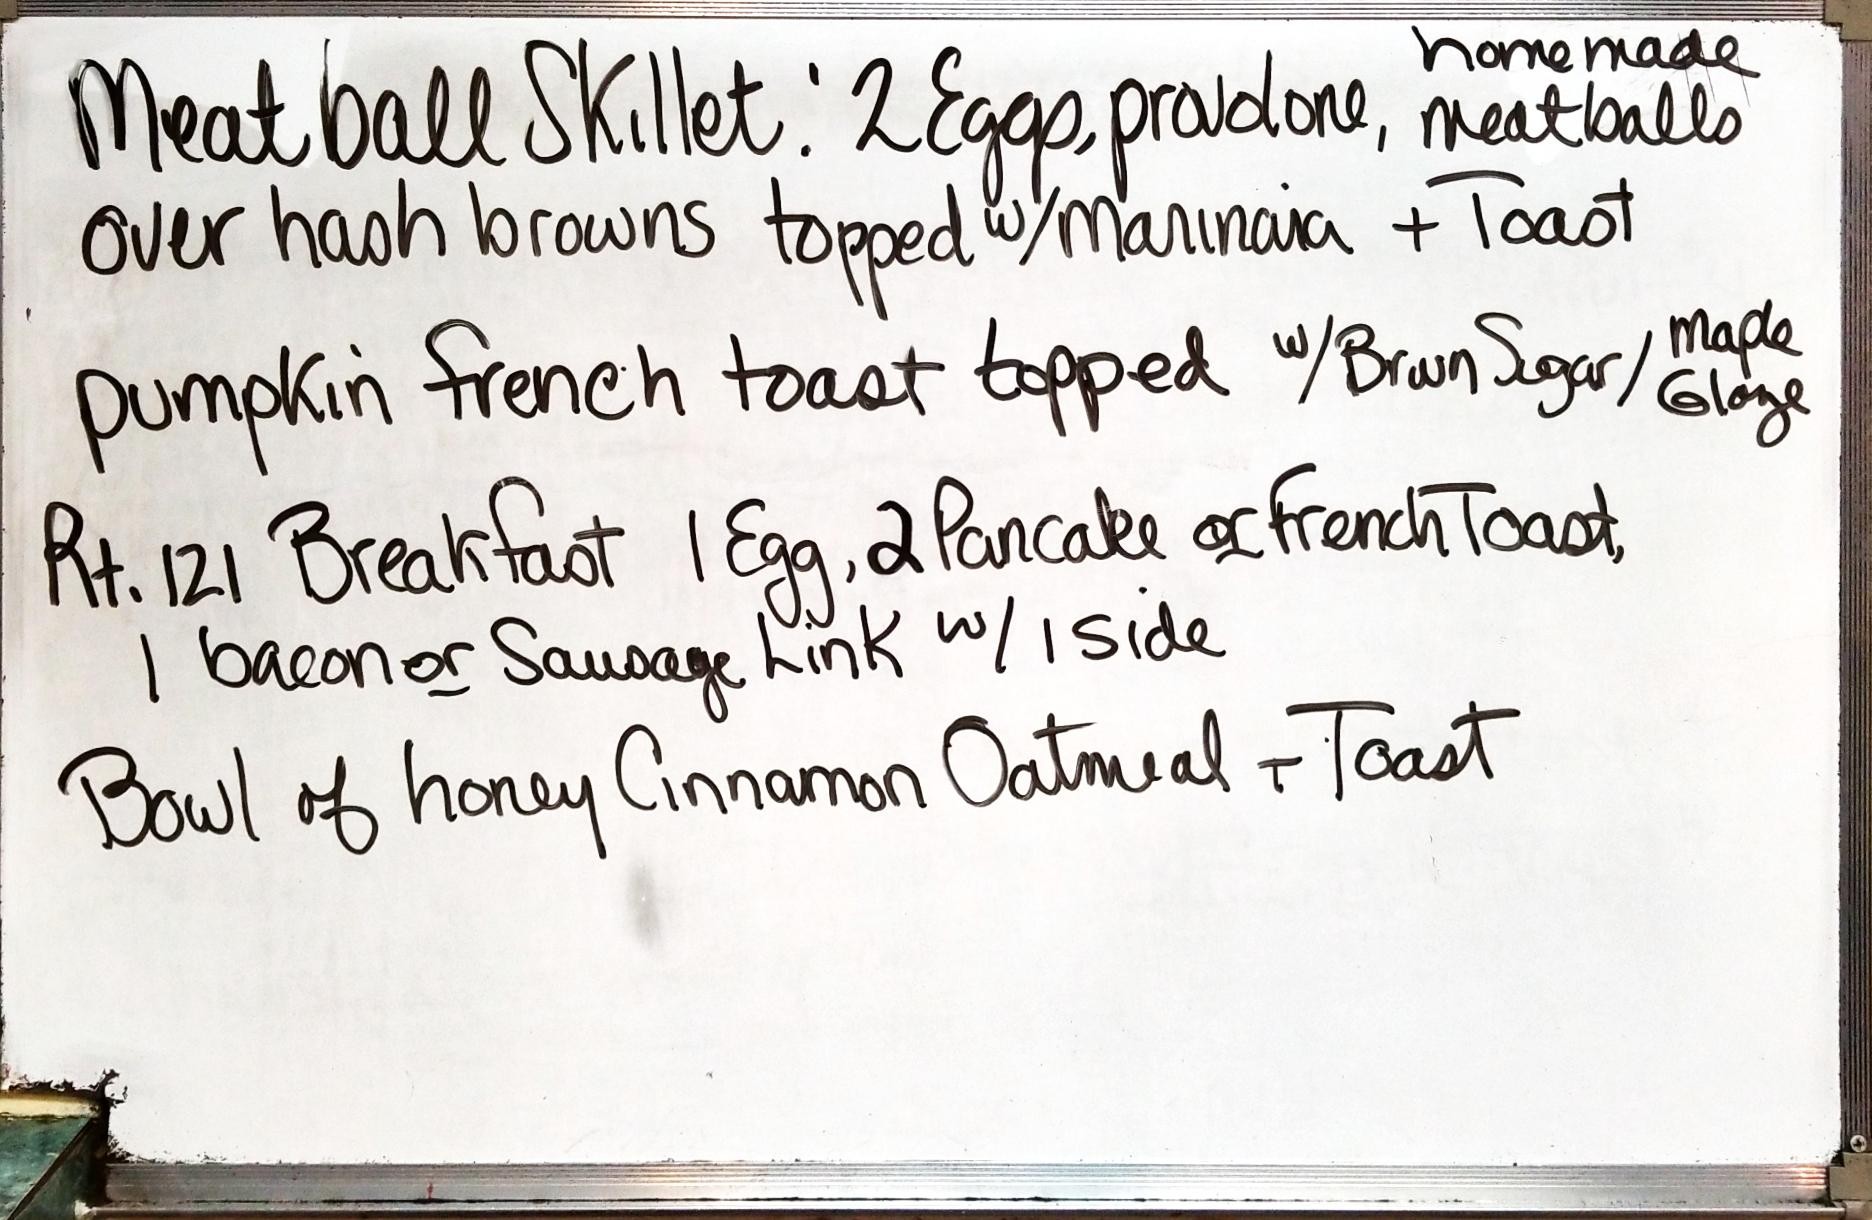 Meatball Skillet: 2 Eggs, provolone, homemade meatballs
over hash browns topped w/ Marinara + Toast
pumpkin french toast topped w/ Brown Sugar/ maple Glaze
Rt. 121 Breakfast 1 Egg, 2 Pancake or French Toast,
1 bacon or Sausage Link w/ 1 side
Bowl of honey Cinnamon Oatmeal + Toast